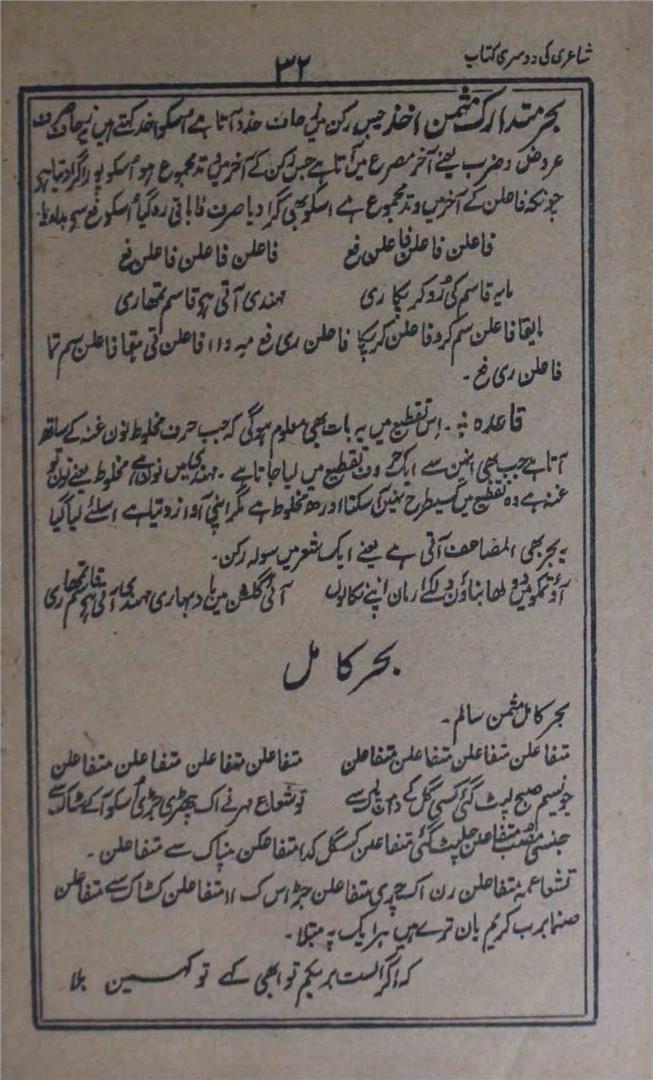 شاعری کی دوسری کتاب
۳۲
بحر متدارک مثمن اخذ جس رکن میں حذف حذذ آتا ہے اُسکو اخذ کہتے ہیں یہ زحاف
عروض و ضرب یعنے آخر مصرع میں آتا ہے جس رکن کے آخر میں وتد مجموع ہو اُسکو پورا گرا دیتا ہے
چونکہ فاعلن کے آخر میں وتد مجموع ہے اسکو بھی گرا دیا صرف فا باقی رہ گیا اُسکو فع سے بدلدیا۔
فاعلن فاعلن فاعلن فع فاعلن فاعلن فاعلن فع
مایہ قاسم کی رو کر پکاری مہندی آتی ہے قاسم تمھاری
فاعلن سم کرو فاعلن کر پکا فاعلن ری فع میہ د اا فاعلن تی ہقا فاعلن سم تما
فاعلن ری فع۔
قاعدہ۔ اس تقطیع میں یہ بات بھی معلوم ہوگی کہ جب حرف مخلوط نون غنہ کے ساتھ
آتا ہے جب بھی انہیں سے ایک حرف تقطیع میں لیا جاتا ہے۔ مہندی میں نون ہے مخلوط یعنے نون تو
غنہ ہے وہ تقطیع میں کسیطرح نہیں آسکتا اور ھ مخلوط ہے مگر اپنی آواز دیتا ہے اسلئے لیا گیا
یہ بحر بھی المضاعف آتی ہے یعنے ایک شعر میں سولہ رکن۔
آؤ تمکو میں دولھا بناؤں دلکے ارمان اپنے نکالوں آئی گلشن میں باد بہاری مہندی آئی ہے قاسم تمھاری
بحر کامل
بحر کامل مثمن سالم۔
متفاعلن متفاعلن متفاعلن متفاعلن متفاعلن متفاعلن متفاعلن متفاعلن
جو نسیم صبح لپٹ گئی کسی گل کے دامن پاک سے تو شعاع مہر نے اک چھڑی جڑی اُسکو آکے سٹاک سے
جنسی متفاعلن حلپٹ گئی متفاعلن کسگل کدا متفاعلن منپاک سے متفاعلن۔
تشعاعمہ متفاعلن رن اک چڑی متفاعلن جڑ اس ک اا متفاعلن کسٹاک سے متفاعلن
صنما برب کریم یان ترے ہیں ہر ایک پہ مبتلا۔
کہ اگر الست بربکم تو ابھی کہے تو کہیں بلا